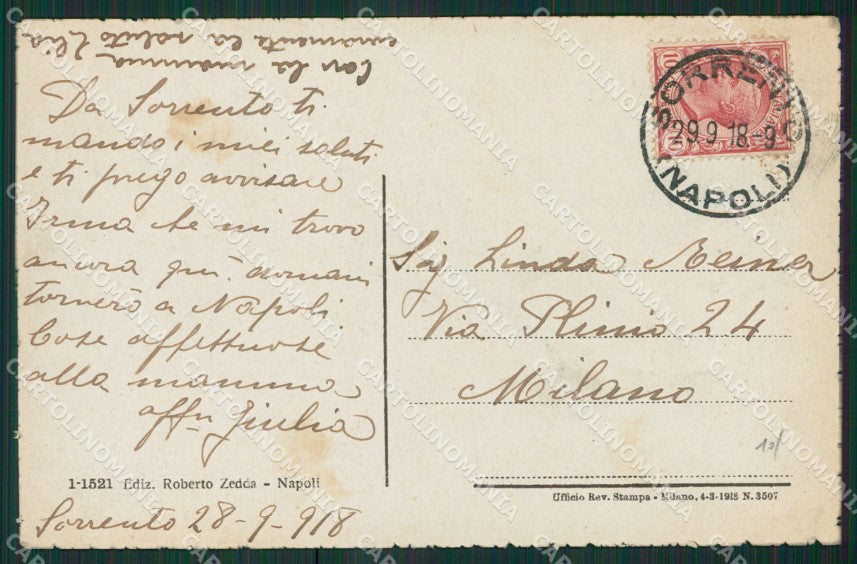 Con la mamma
caramente la saluto Zelia
Da Sorrento ti
mando i miei saluti
e ti prego avvisare
Irma che mi trovo
ancora qui, domani
tornerò a Napoli
Cose affettuose
alla mamma
affma Giulia
1-1521 Ediz. Roberto Zedda - Napoli
Sorrento 28-9-918
SORRENTO
29.9.18-9
(NAPOLI)
10
10
Sig Linda Reiner
Via Plinio 24
Milano
10/
Ufficio Rev. Stampa - Milano, 4-3-1918 N. 3507
CARTOLINOMANIA